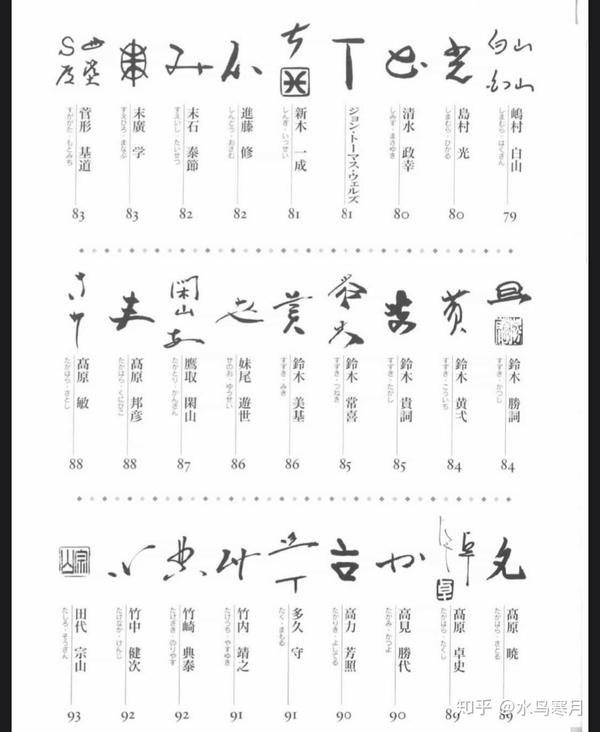 嶋村 白山
しまむら・はくさん
79
島村 光
しまむら・ひかる
80
清水 政幸
しみず・まさゆき
80
ジョン・トーマス・ウェルズ
81
新木 一成
しんぎ・いっせい
81
進藤 修
しんどう・おさむ
82
末石 泰節
すえいし・たいせつ
82
末廣 学
すえひろ・まなぶ
83
菅形 基道
すががた・もとみち
83
鈴木 勝詞
すずき・かつじ
84
鈴木 黄弌
すずき・こういち
84
鈴木 貴詞
すずき・たかし
85
鈴木 常喜
すずき・つねき
85
鈴木 美基
すずき・みき
86
妹尾 遊世
せのお・ゆうせい
86
鷹取 閑山
たかとり・かんざん
87
髙原 邦彦
たかはら・くにひこ
88
髙原 敏
たかはら・さとし
88
髙原 暁
たかはら・さとる
89
髙原 卓史
たかはら・たくし
89
高見 勝代
たかみ・かつよ
90
高力 芳照
たかりき・よしてる
90
多久 守
たく・まもる
91
竹内 靖之
たけうち・やすゆき
91
竹崎 典泰
たけざき・のりやす
92
竹中 健次
たけなか・けんじ
92
田代 宗山
たしろ・そうざん
93
知乎 @水鸟寒月